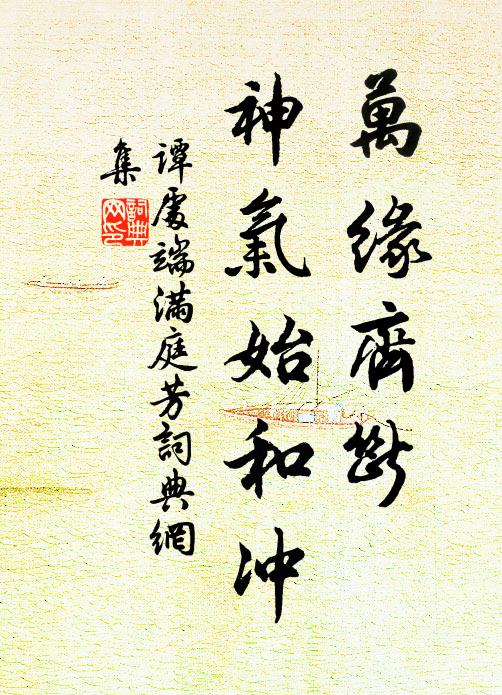 萬緣齊斷
神氣始和沖
譚處端滿庭芳詞典網
集
詞典
网印